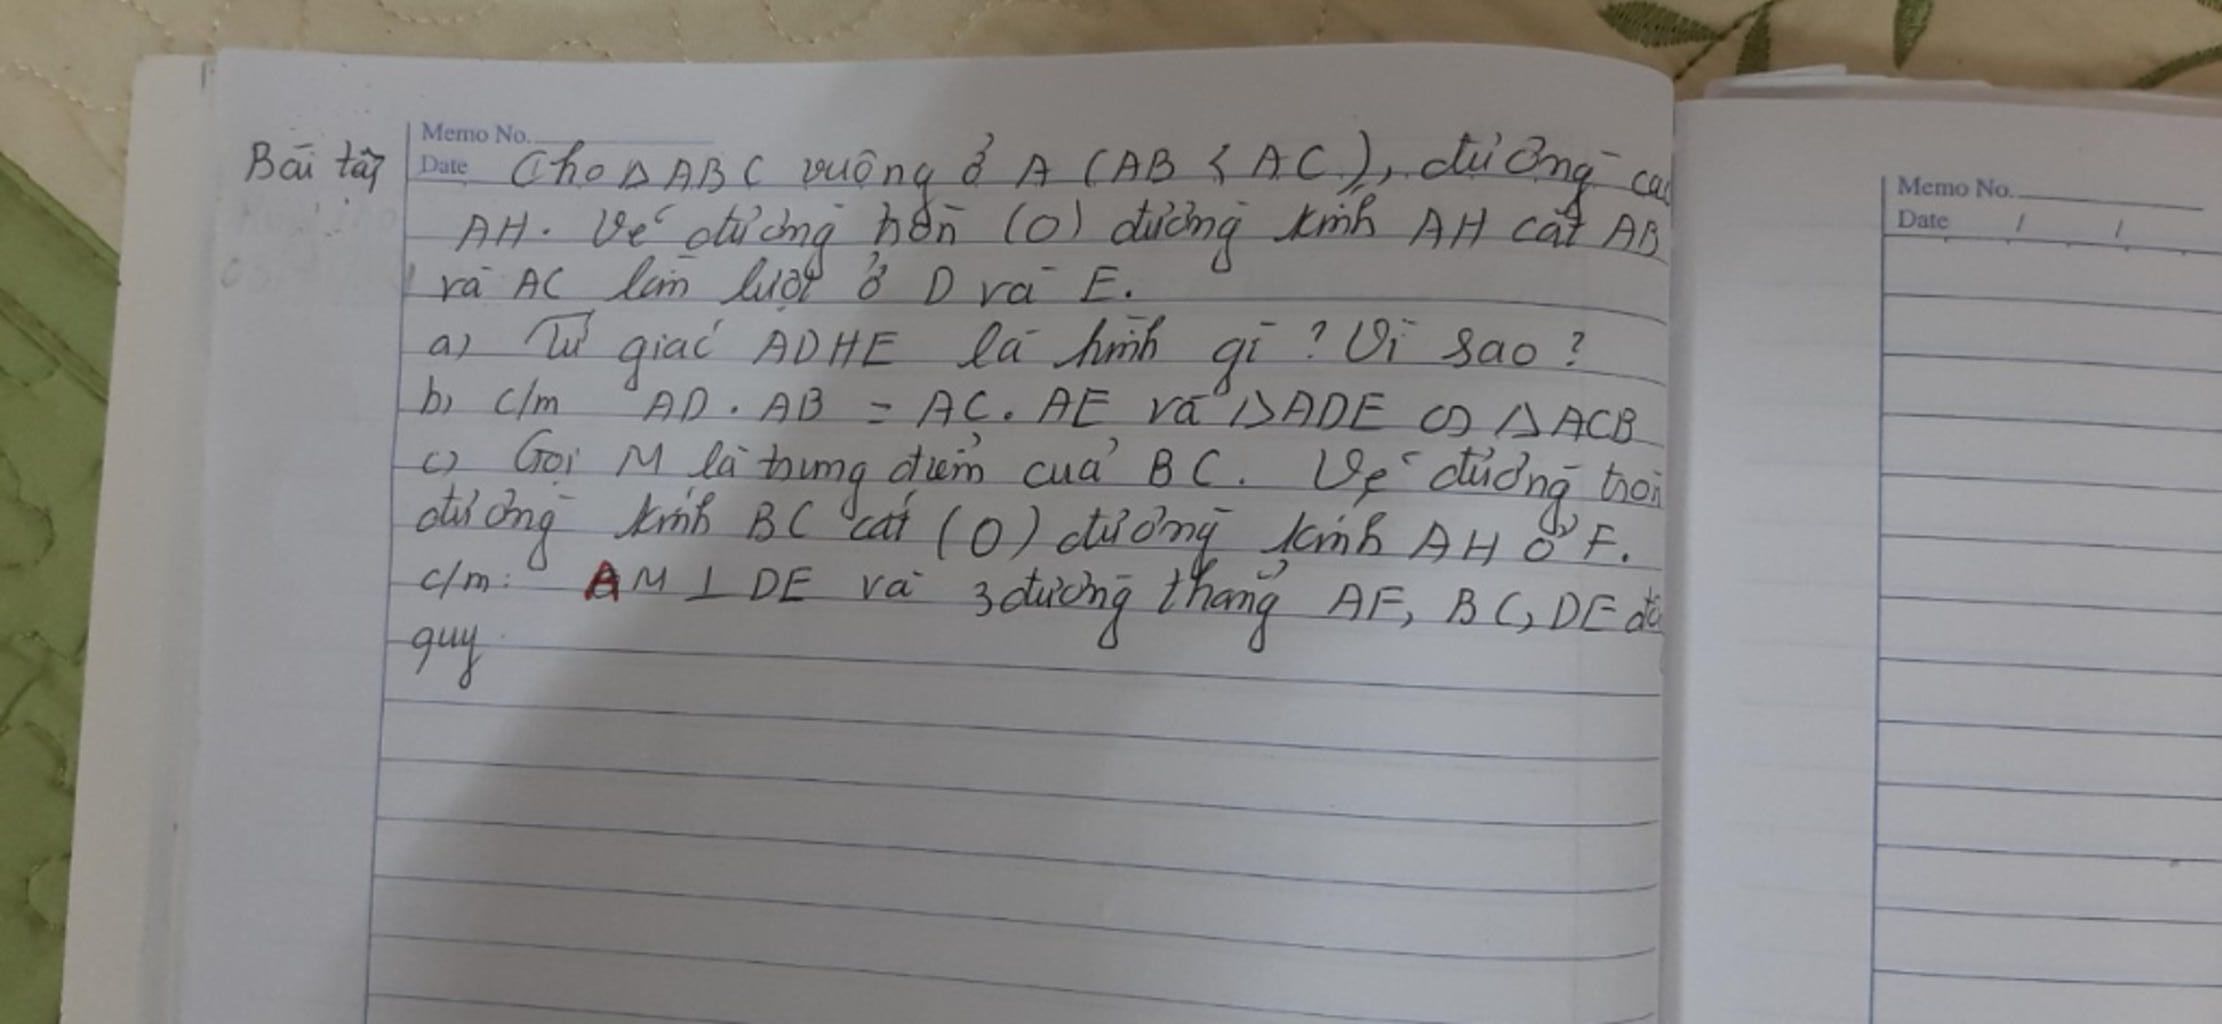 Memo No.
Bài tập Date Cho Δ ABC vuông ở A (AB < AC), đường cao
AH. Vẽ đường tròn (O) đường kính AH cắt AB
và AC lần lượt ở D và E.
a) Tứ giác ADHE là hình gì ? Vì sao ?
b) c/m AD . AB = AC . AE và Δ ADE ∽ Δ ACB
c) Gọi M là trung điểm của BC. Vẽ đường tròn
đường kính BC cắt (O) đường kính AH ở F.
c/m: AM ⊥ DE và 3 đường thẳng AF, BC, DE
quy
Memo No.
Date / /